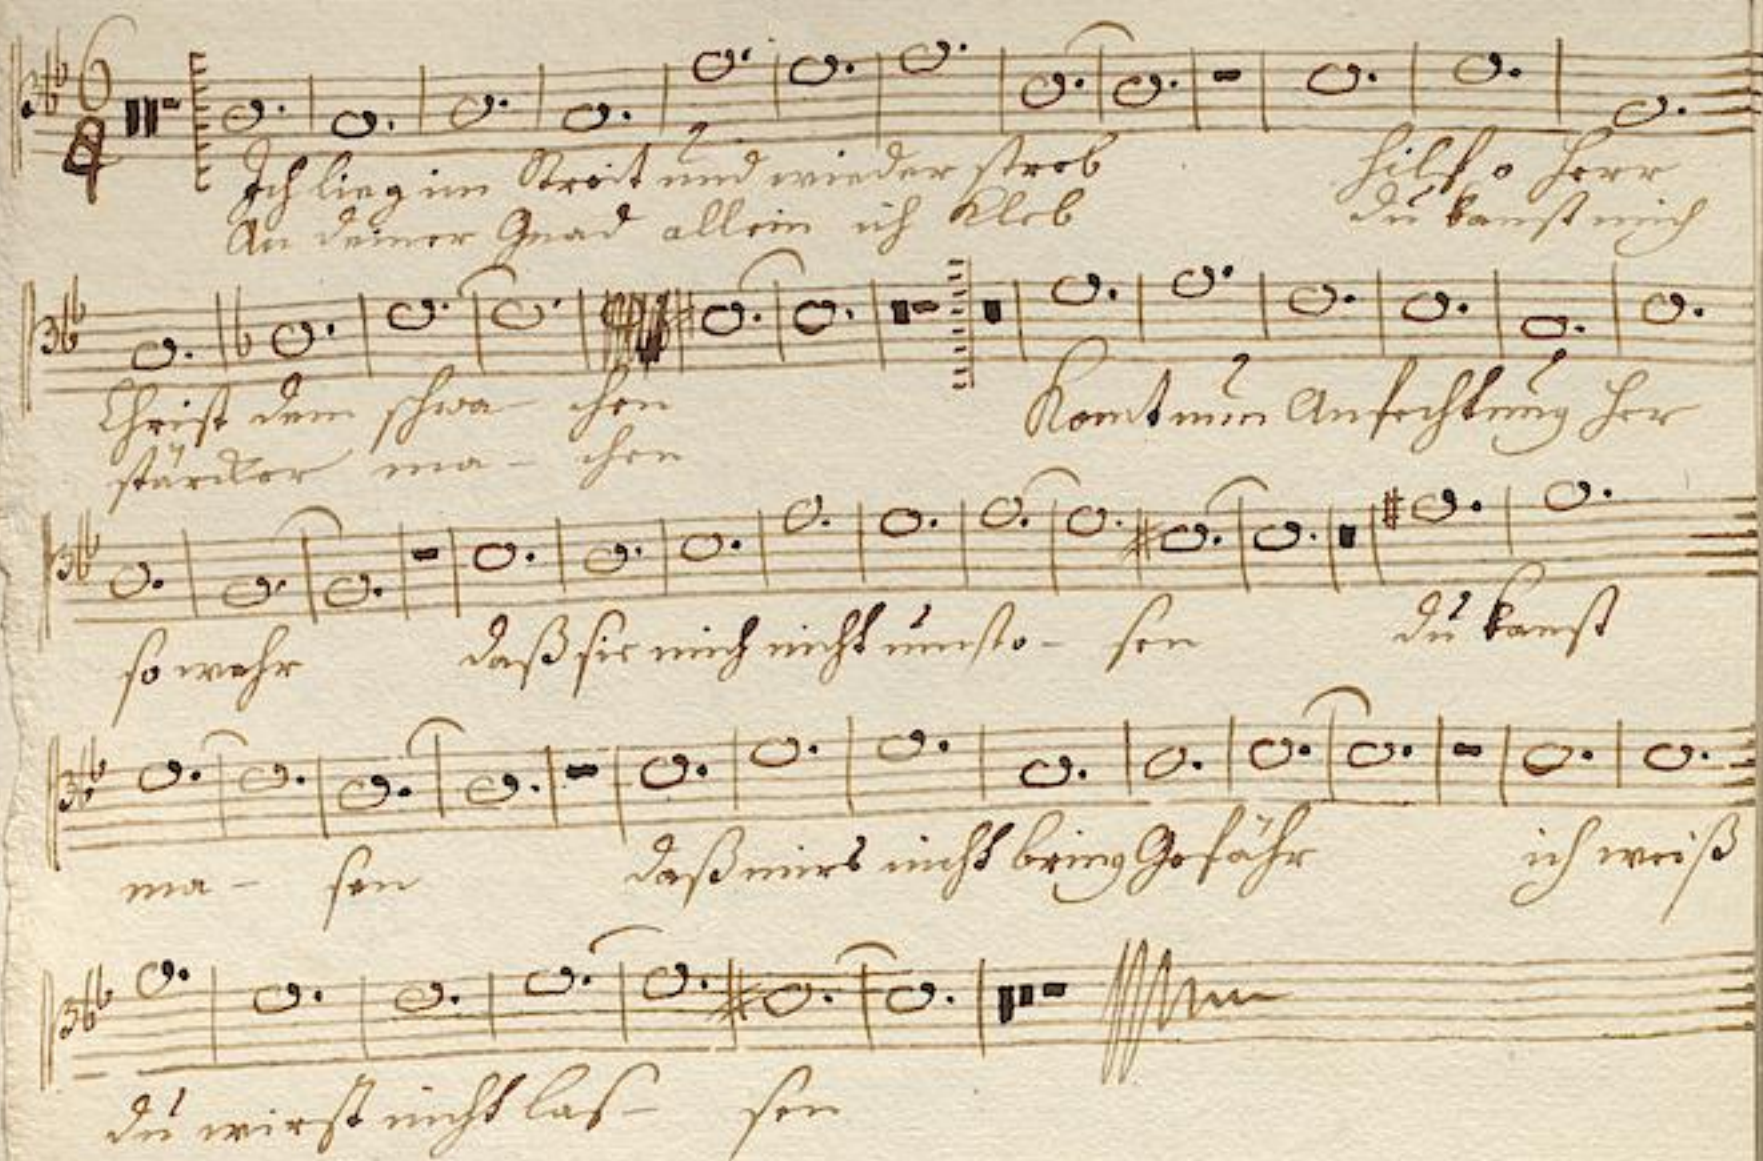 6
4
Ich lieg im Streit und wieder streb hilf o Herr
An deiner Gnad allein ich Kleb du kanst mich
Christ dem schwa- chen Komt nun Anfechtung her
stärcker ma- chen
so wehr daß sie mich nicht umsto- sen du kanst
ma- sen daß mirs nicht bring Gefähr ich weiß
du wirst nicht las- sen